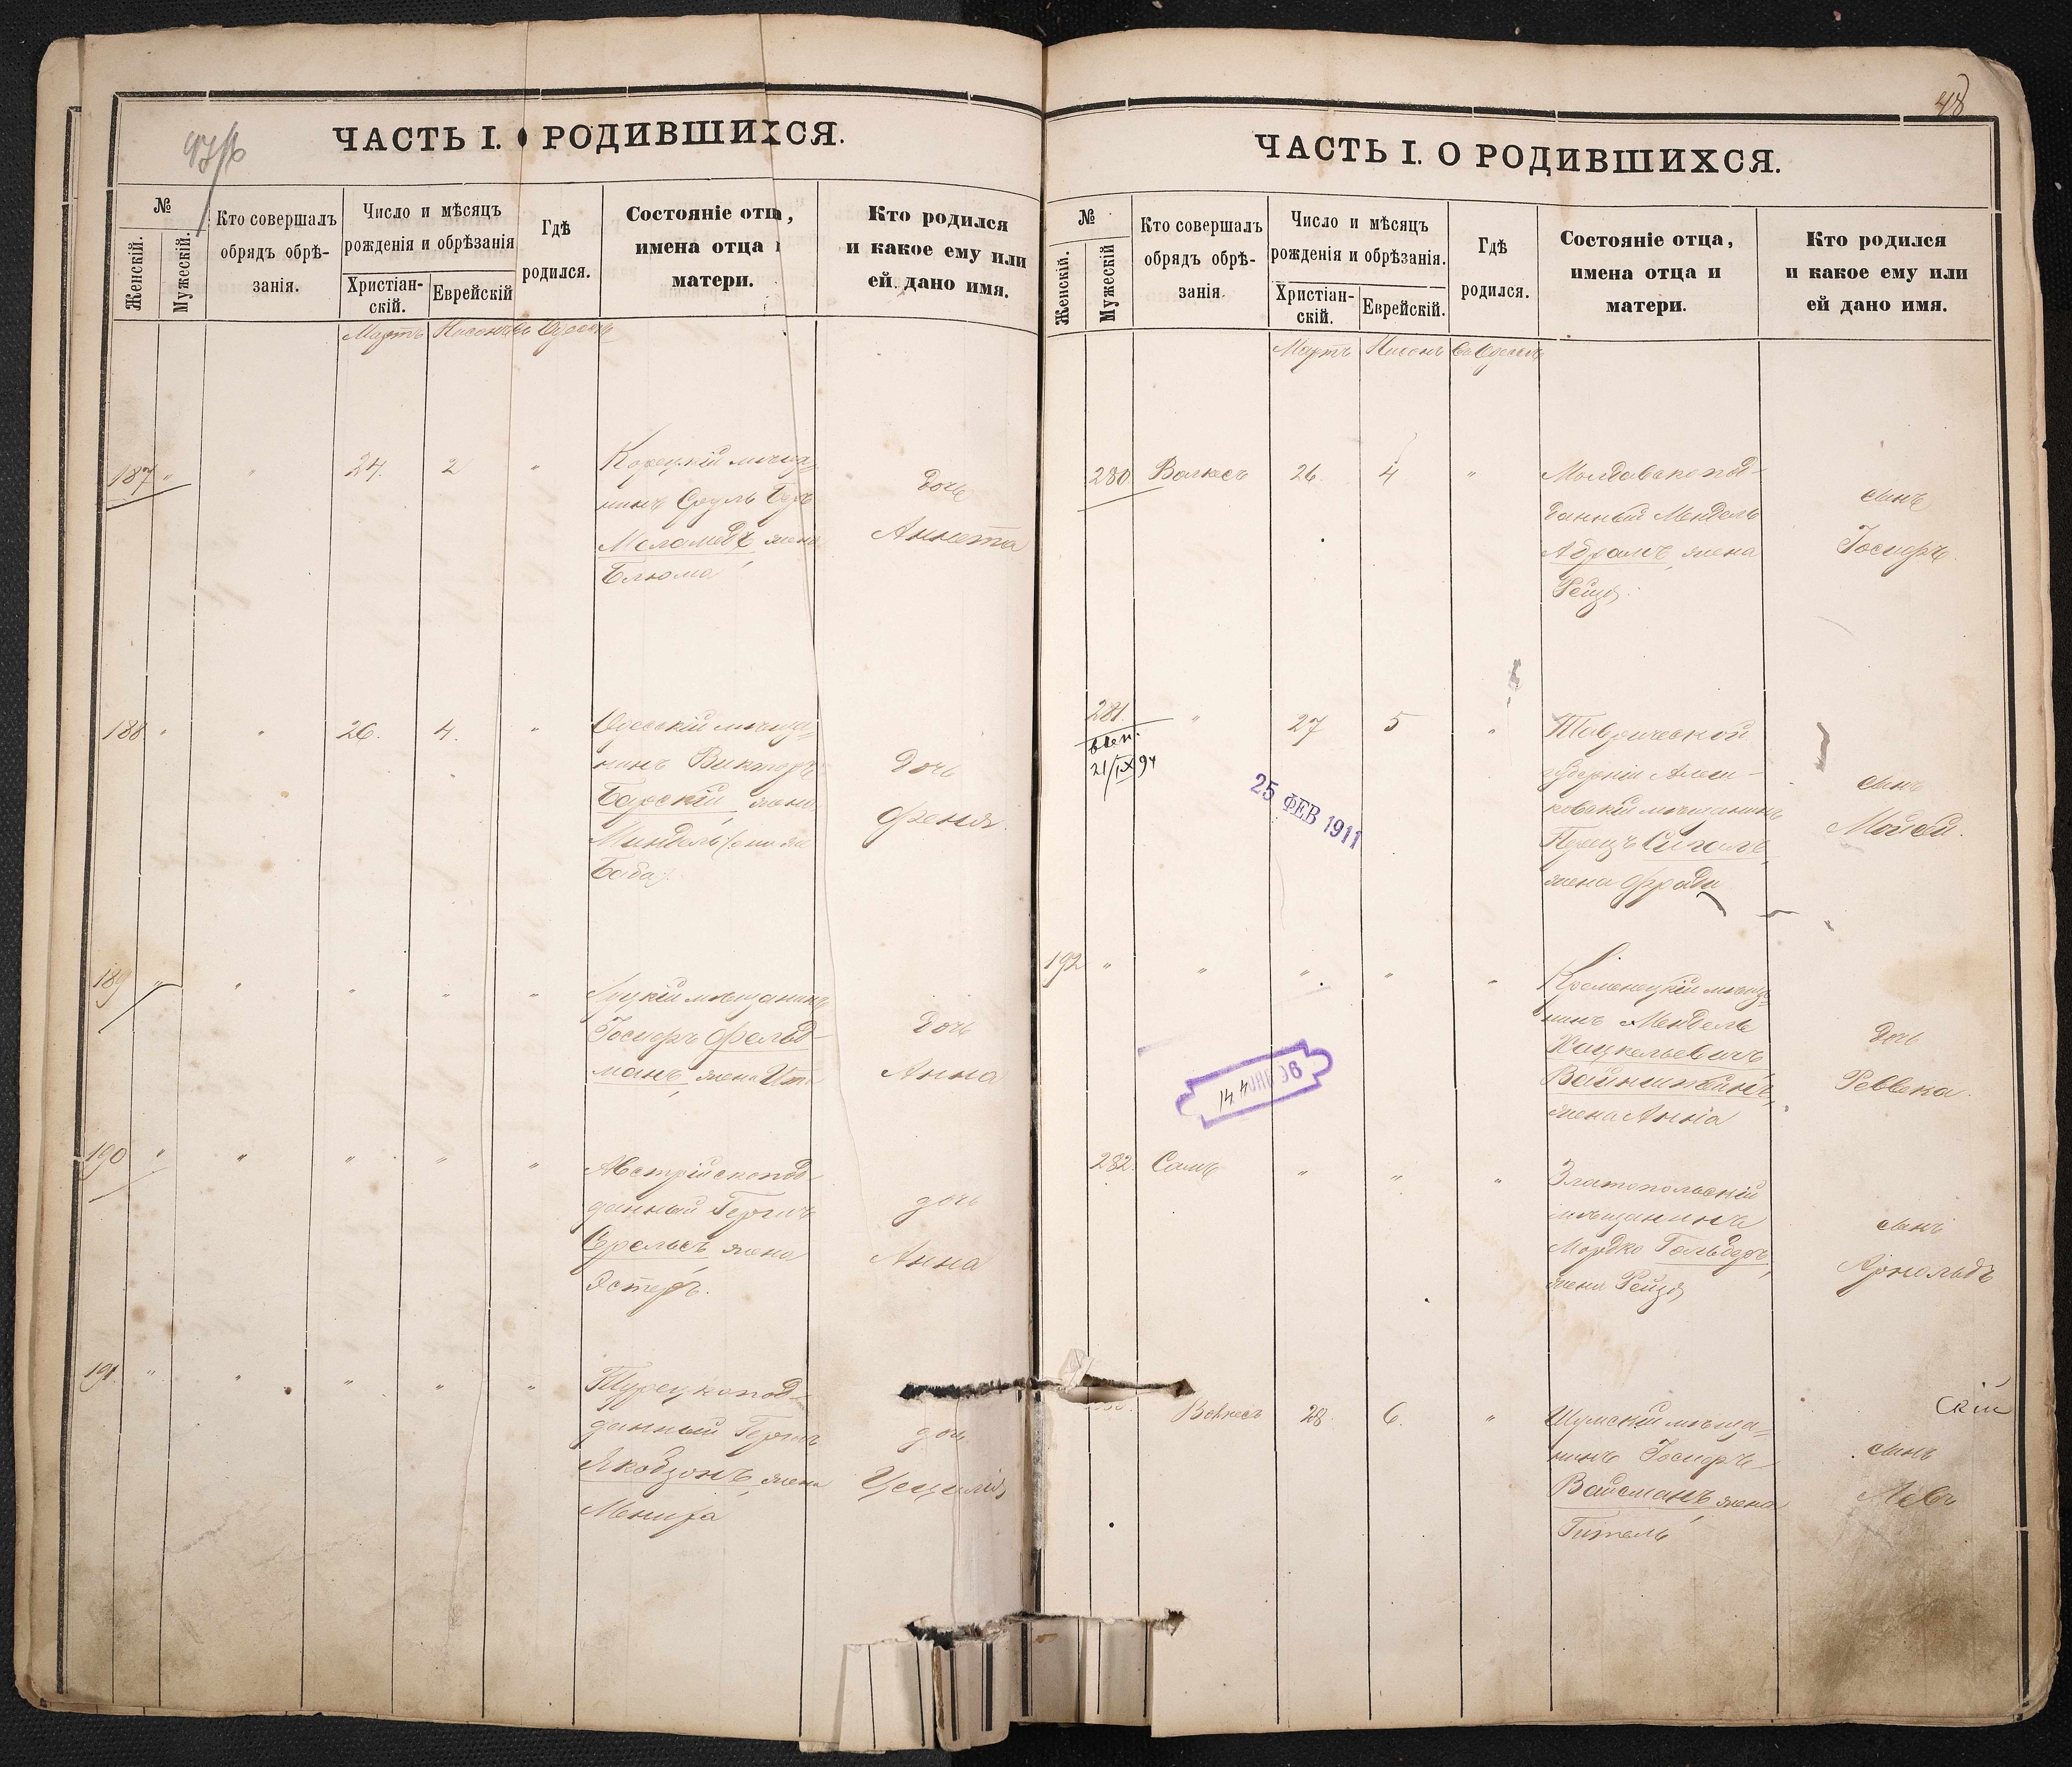 ЧАСТЬ I. О РОДИВШИХСЯ.
№
Женскій.
Мужескій.
Кто совершалъ
обрядъ обрѣ-
занія.
Число и мѣсяцъ
рожденія и обрѣзанія
Христіан-
скій.
Еврейскій
Гдѣ
родился.
Состояніе отца,
имена отца
матери.
Кто родился
и какое ему или
ей дано имя.
Мартъ Нисонъ Въ Одессѣ
187 " " 24. 2 "
Корецкій мѣща=
нинъ Сруль Беръ
Меламедъ, жена
Блюма
Дочь
Аннета
188 " " 26. 4. "
Одесскій мѣща=
нинъ Викторъ
Барскій, жена
Миндель (она же
Баба).
Дочь
Феня.
189 " " " " "
Луцкій мѣщанинъ
Іосифъ Фельд-
манъ, жена Ита
Дочь
Анна
190 " " " " "
Австрійскопод-
данный Гершъ
жена
Эстеръ.
дочь
Анна
191 " " " " "
Турецкопод-
данный Гершъ
Якобзонъ, жена
дочь
Цецилія
48
ЧАСТЬ I. О РОДИВШИХСЯ.
№
Женскій.
Мужескій
Кто совершалъ
обрядъ обрѣ-
занія
Число и мѣсяцъ
рожденія и обрѣзанія.
Христіан-
скій.
Еврейскій.
Гдѣ
родился.
Состояніе отца,
имена отца и
матери.
Кто родился
и какое ему или
ей дано имя.
Мартъ Нисонъ Въ Одессѣ
280 Волкесъ 26. 4 "
Молдавскопод-
данный Мендель
Абрамъ, жена
Рейзя.
сынъ
Іосифъ.
281. " 27 5 "
21/IX 94
25 ФЕВ 1911
Таврической
губерніи Алеш-
ковскій мѣщанинъ
Перецъ Сигалъ,
жена Фрада
сынъ
Мойсей.
192 " " " " "
Кременецкій мѣща=
нинъ Мендель
Хацкелевичъ
Вайнштейнъ,
жена Анна
Дочь
Ревека.
282. Самъ " " "
Златопольскій
мѣщанинъ
Мордко
жена Рейзя
сынъ
Арнольдъ
Волкесъ 28. 6. "
Шумскій мѣща=
нинъ Іосифъ
Вайсманъ, жена
Гитель
сынъ
Левъ